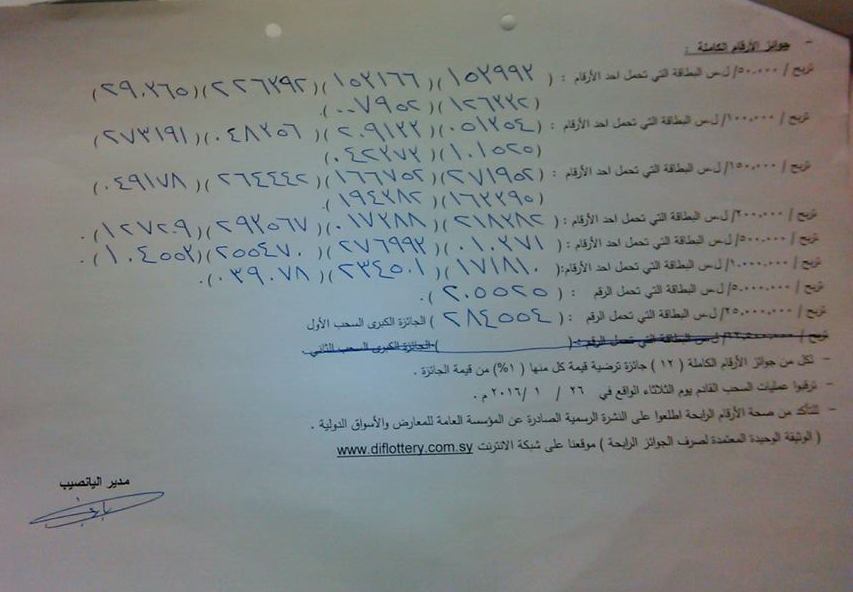 - جوائز الأرقام الكاملة :
تربح / ٥٠,٠٠٠/ ل.س البطاقة التي تحمل احد الأرقام : ( ١٥٢٩٩٢ ) ( ١٥٢١٦٦ ) ( ٢٢٦٢٩٢ ) ( ٢٩٠٢٦٥ )
( ١٢٦٢٢٢ ) ( ٠٠٧٩٥٢ ).
تربح / ١٠٠,٠٠٠/ ل.س البطاقة التي تحمل احد الأرقام : ( ٠٥١٢٥٤ ) ( ٢٠٩١٢٢ ) ( ٠٤٨٢٥٦ ) ( ٢٧٣١٩١ )
( ١٠١٥٢٥ ) ( ٠٤٢٢٧٢ )
تربح / ١٥٠,٠٠٠/ ل.س البطاقة التي تحمل احد الأرقام : ( ٢٧١٩٥٢ ) ( ١٦٦٧٥٢ ) ( ٢٦٤٤٤٢ ) ( ٠٤٩١٧٨ )
( ١٦٢٢٩٥ ) ( ١٩٤٢٨٢ ).
تربح / ٢٠٠,٠٠٠/ ل.س البطاقة التي تحمل احد الأرقام : ( ٢١٨٢٨٢ ) ( ٠١٧٢٨٨ ) ( ٢٩٢٥٦٧ ) ( ١٢٧٢٠٩ ) .
تربح / ٥٠٠,٠٠٠/ ل.س البطاقة التي تحمل احد الأرقام : ( ٠١٠٢٧١ ) ( ٢٧٦٩٩٢ ) ( ٢٥٥٤٧٠ ) ( ١٠٤٥٥٢ ) .
تربح / ١,٠٠٠,٠٠٠/ ل.س البطاقة التي تحمل احد الأرقام: ( ١٧١٨١٠ ) ( ٢٣٤٥٠١ ) ( ٠٣٩٠٧٨ ).
تربح / ٥,٠٠٠,٠٠٠/ ل.س البطاقة التي تحمل الرقم : ( ٢٠٥٥٢٥ ).
تربح / ٢٥,٠٠٠,٠٠٠/ ل.س البطاقة التي تحمل الرقم : ( ٢٨٤٥٥٤ ) الجائزة الكبرى السحب الأول
تربح / ل.س البطاقة التي تحمل الرقم : ( ) الجائزة الكبرى السحب الثاني
- لكل من جوائز الأرقام الكاملة ( ١٢ ) جائزة ترضية قيمة كل منها ( ١%) من قيمة الجائزة .
- ترقبوا عمليات السحب القادم يوم الثلاثاء الواقع في ٢٦ / ١ /٢٠١٦ م .
- للتأكد من صحة الأرقام الرابحة اطلعوا على النشرة الرسمية الصادرة عن المؤسسة العامة للمعارض والأسواق الدولية .
( الوثيقة الوحيدة المعتمدة لصرف الجوائز الرابحة ) موقعنا على شبكة الانترنت www.diflottery.com.sy
مدير اليانصيب